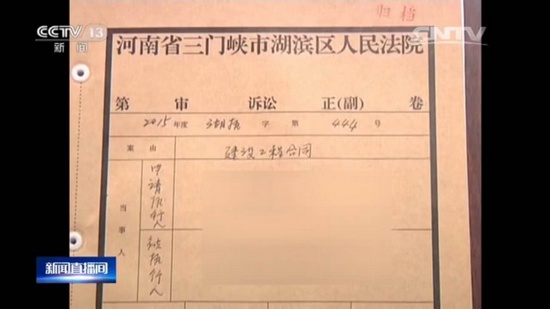 CCTV 13
新闻
归档
CNTV
河南省三门峡市湖滨区人民法院
第 审 诉讼 正(副) 卷
2015 年度 湖执 字第 444 号
案由 建设工程合同
当事人
申请执行人
被执行人
新闻直播间